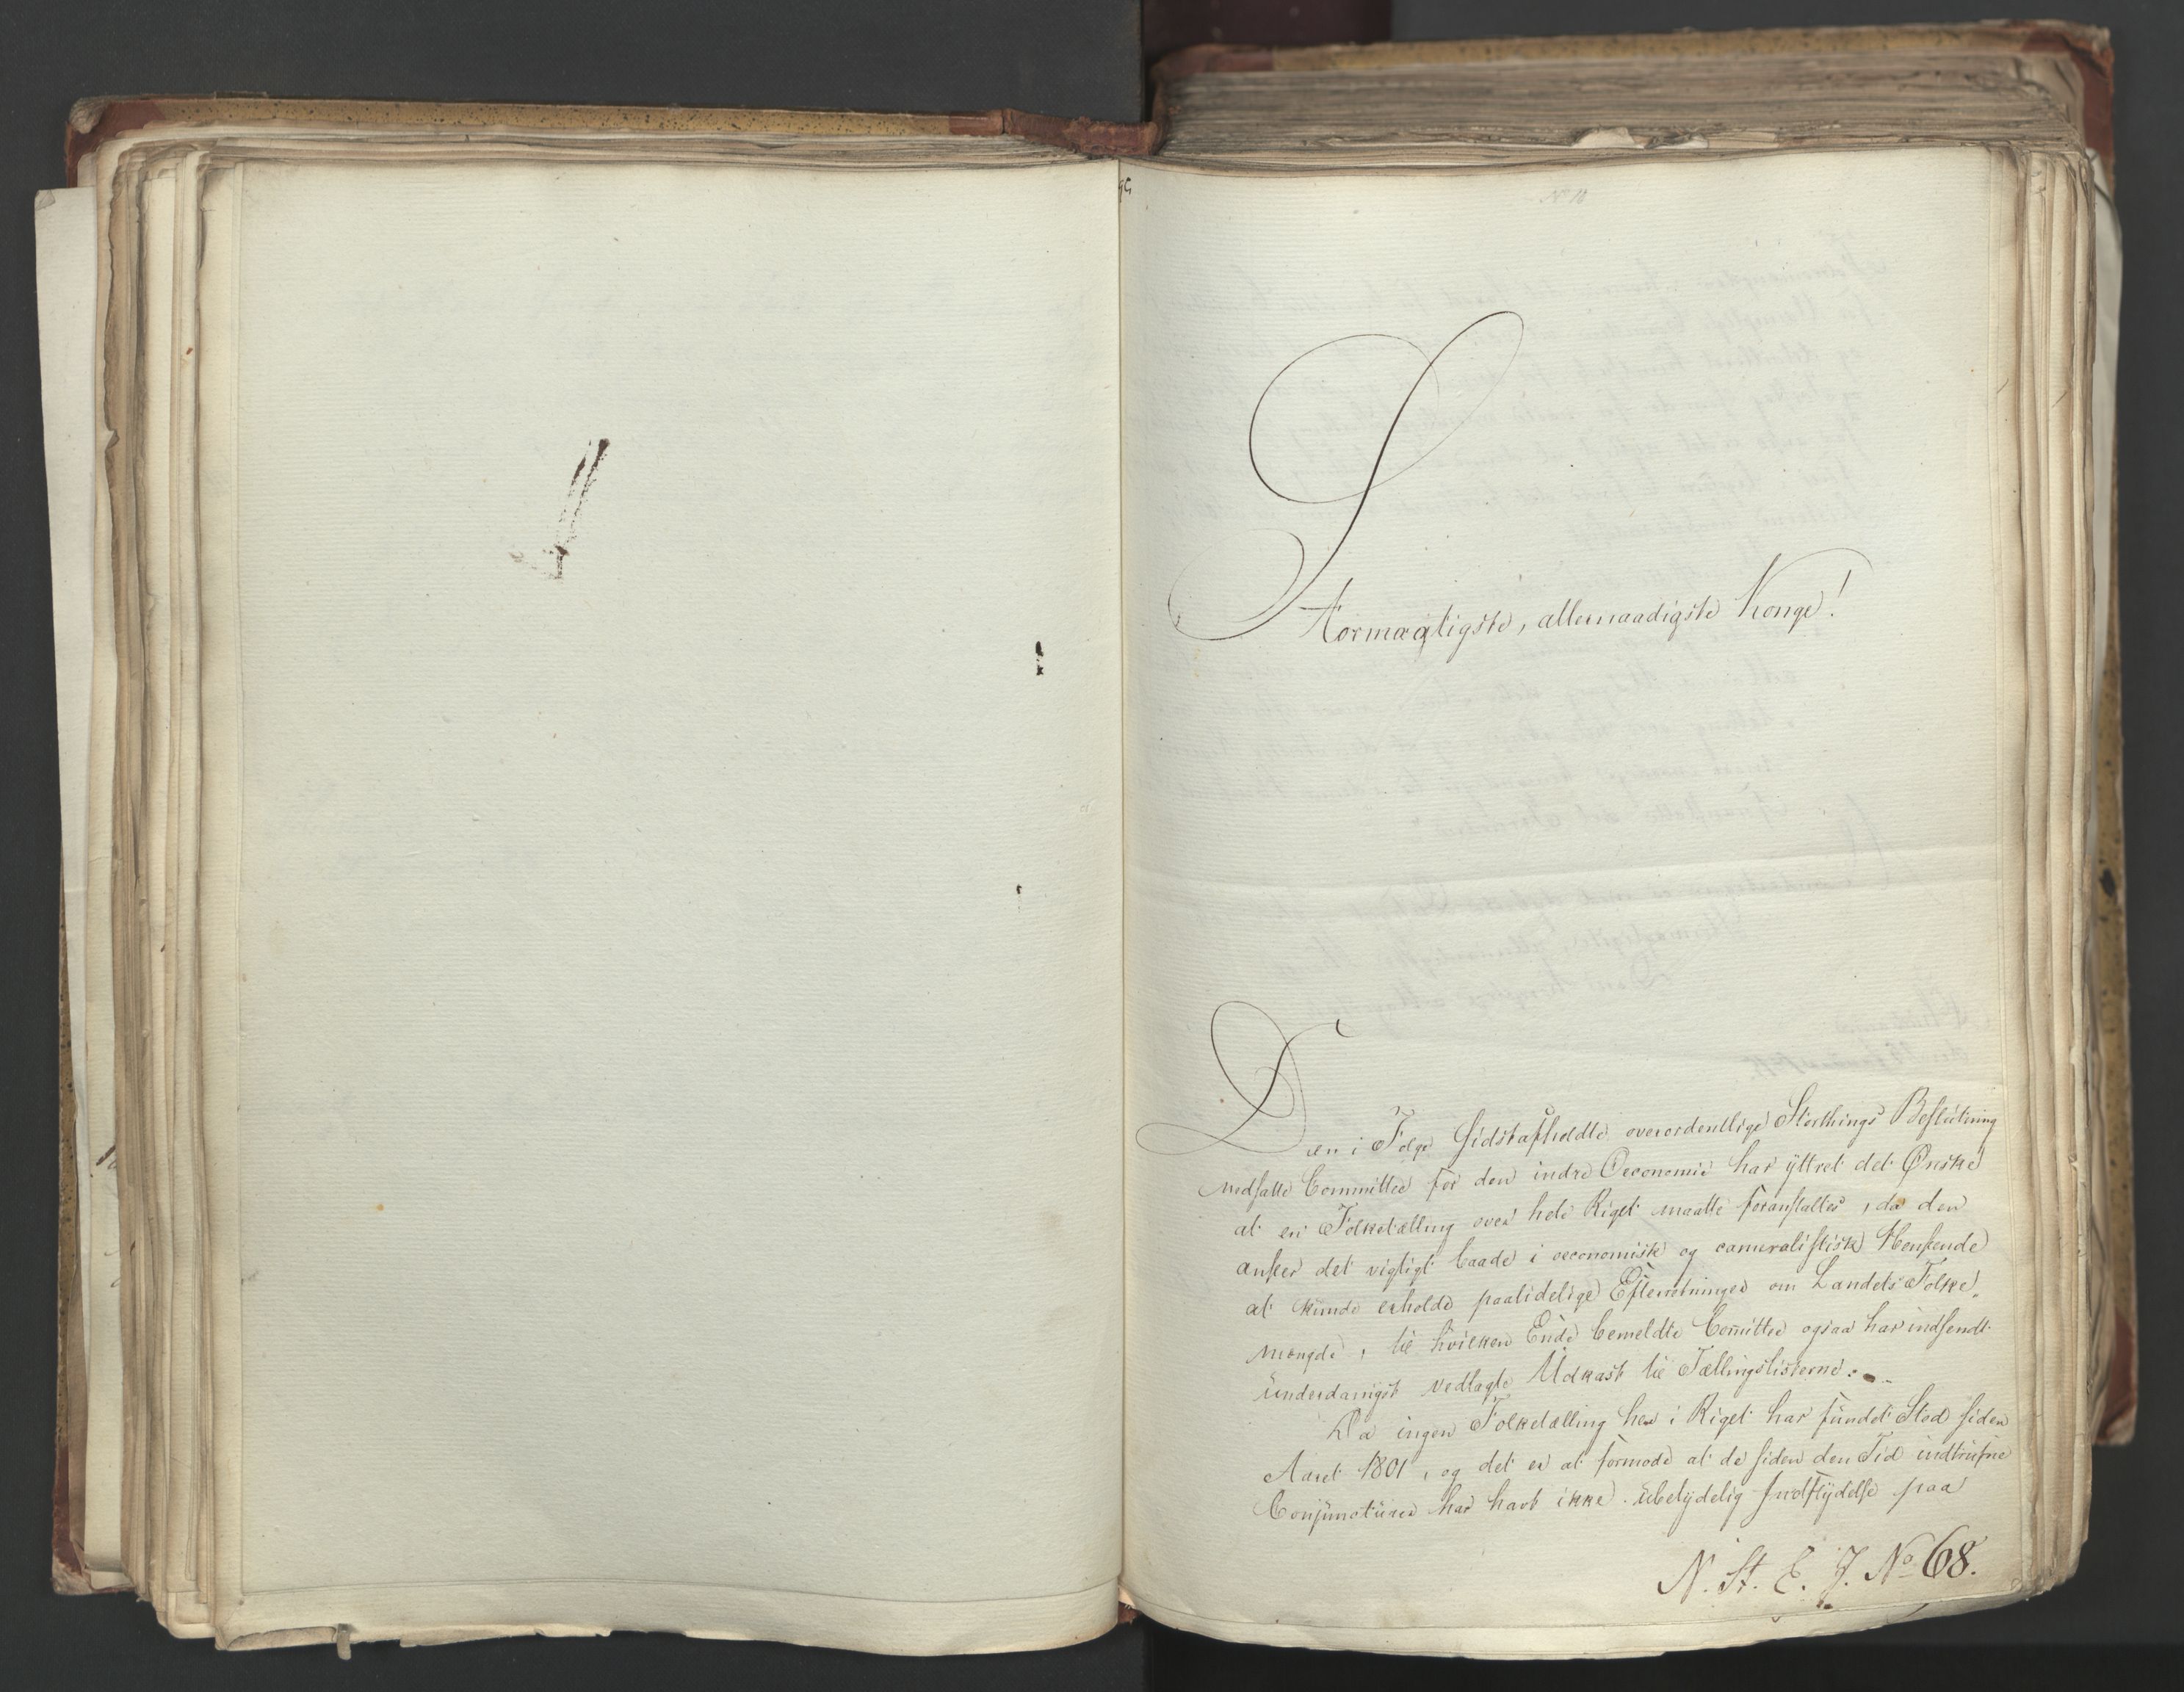 No 18
Stormægtigste, allernaadigste Konge!
Den i Følge sidstafholdte overordentlige Storthings Beslutning
nedsatte Committee for den indre Oeconomie har yttret det Ønske
at en Folketælling over hele Riget maatte foranstaltes, da den
anseer det vigtigt baade i oeconomisk og cameralistisk Henseende
at kunde erholde paalidelige Efterretninger om Landets Folke„
mængde, til hvilken Ende bemeldte Com̅ittee ogsaa har indsendt
underdanigst vedlagte Udkast til Tællingslisterne.
Da ingen Folketælling her i Riget har fundet Sted siden
Aaret 1801, og det er at formode at de siden den Tid indtrufne
Conjuncturer har havt ikke ubetydelig Indflydelse paa
N. St. E. J. No 68.